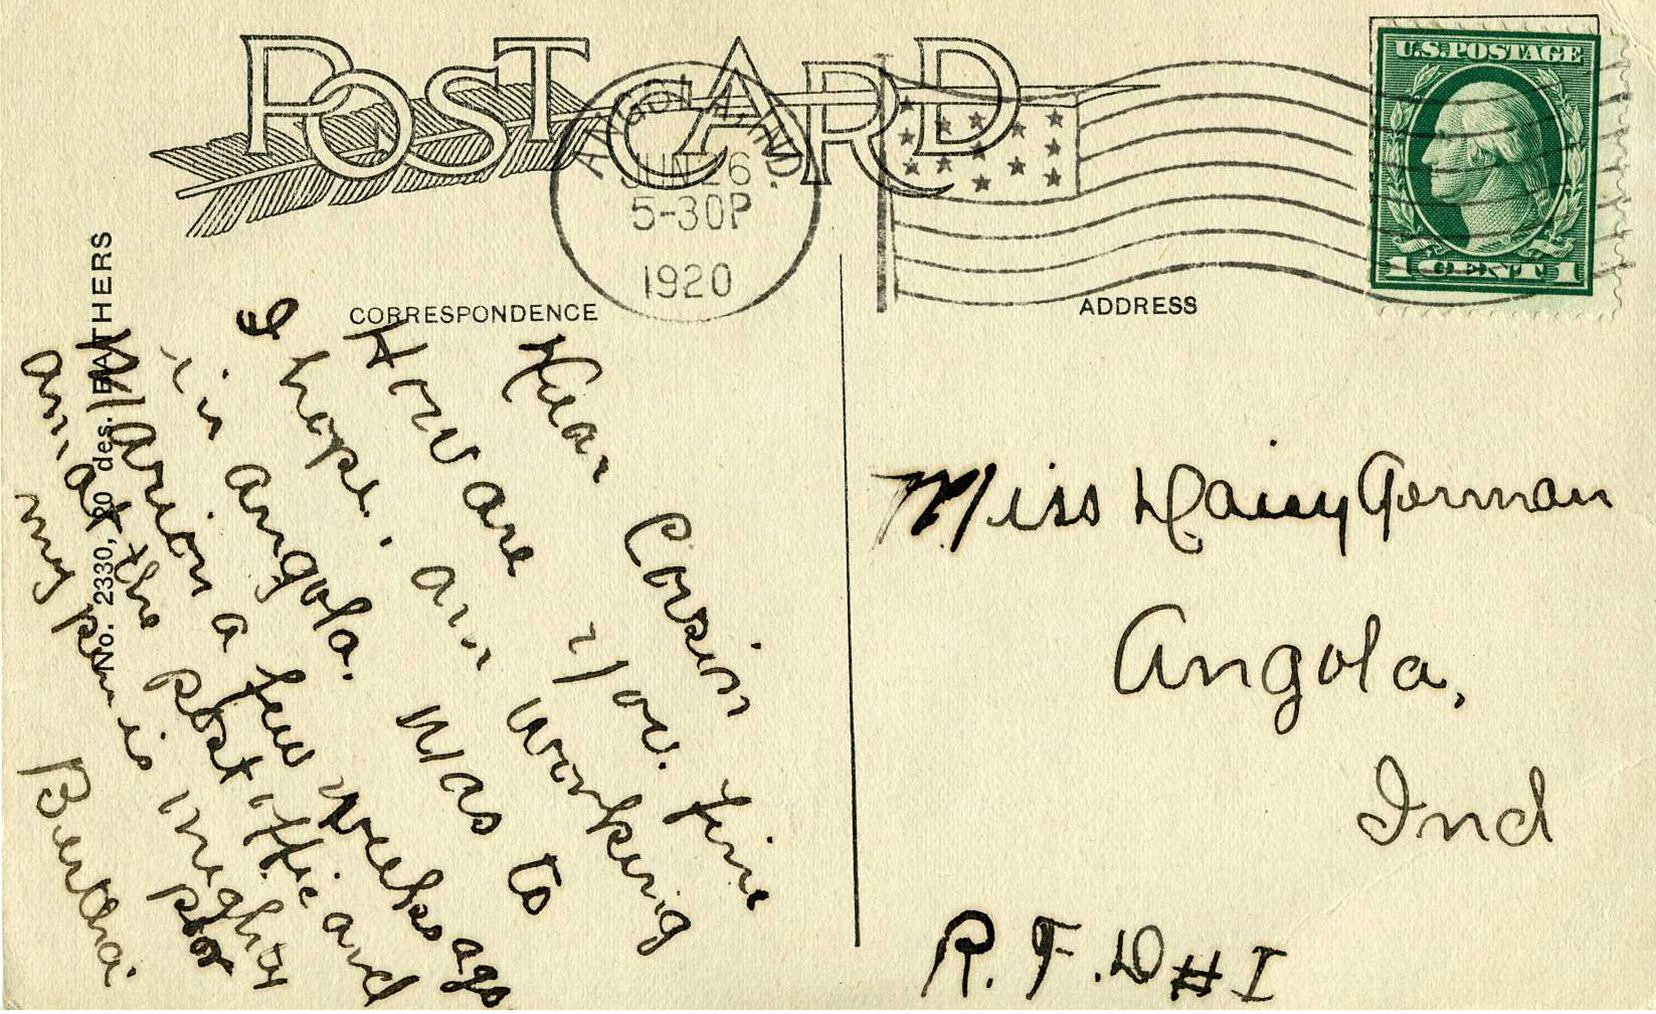 POST CARD
ANGOLA, IND.
JUN 26
5-30P
1920
U.S. POSTAGE
1 CENT 1
CORRESPONDENCE
ADDRESS
Dear Cousin
How are you. fine
I hope. am working
in Angola. Was to
Marion a few weeks ago
am at the post office and
my pen is mighty
poor
Bertha.
Miss Daisy Gorman
Angola,
Ind
R. F. D # 1
No. 2330, 20 des. FEATHERS